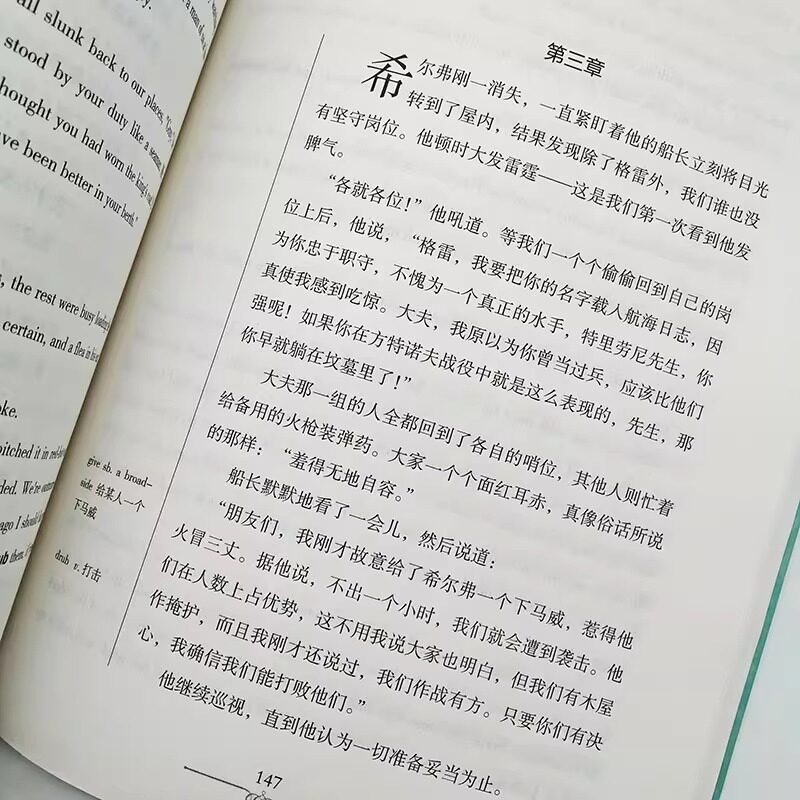 all slunk back to our places,
stood by your duty like a seaman
thought you had worn the king's
have been better in your berth."
, the rest were busy loading
certain, and a flea in his
oke.
pitched it in red-hot
ded. We're outnu
ago I should
ub them,
give sb. a broad-
side 给某人一个
下马威
drub v. 打击
第三章
希尔弗刚一消失，一直紧盯着他的船长立刻将目光
转到了屋内，结果发现除了格雷外，我们谁也没
有坚守岗位。他顿时大发雷霆——这是我们第一次看到他发
脾气。
“各就各位！”他吼道。等我们一个个偷偷回到自己的岗
位上后，他说，“格雷，我要把你的名字载人航海日志，因
为你忠于职守，不愧为一个真正的水手，特里劳尼先生，你
真使我感到吃惊。大夫，我原以为你曾当过兵，应该比他们
强呢！如果你在方特诺夫战役中就是这么表现的，先生，那
你早就躺在坟墓里了！”
大夫那一组的人全都回到了各自的哨位，其他人则忙着
给备用的火枪装弹药。大家一个个面红耳赤，真像俗话所说
的那样：“羞得无地自容。”
船长默默地看了一会儿，然后说道：
“朋友们，我刚才故意给了希尔弗一个下马威，惹得他
火冒三丈。据他说，不出一个小时，我们就会遭到袭击。他
们在人数上占优势，这不用我说大家也明白，但我们有木屋
作掩护，而且我刚才还说过，我们作战有方。只要你们有决
心，我确信我们能打败他们。”
他继续巡视，直到他认为一切准备妥当为止。
147